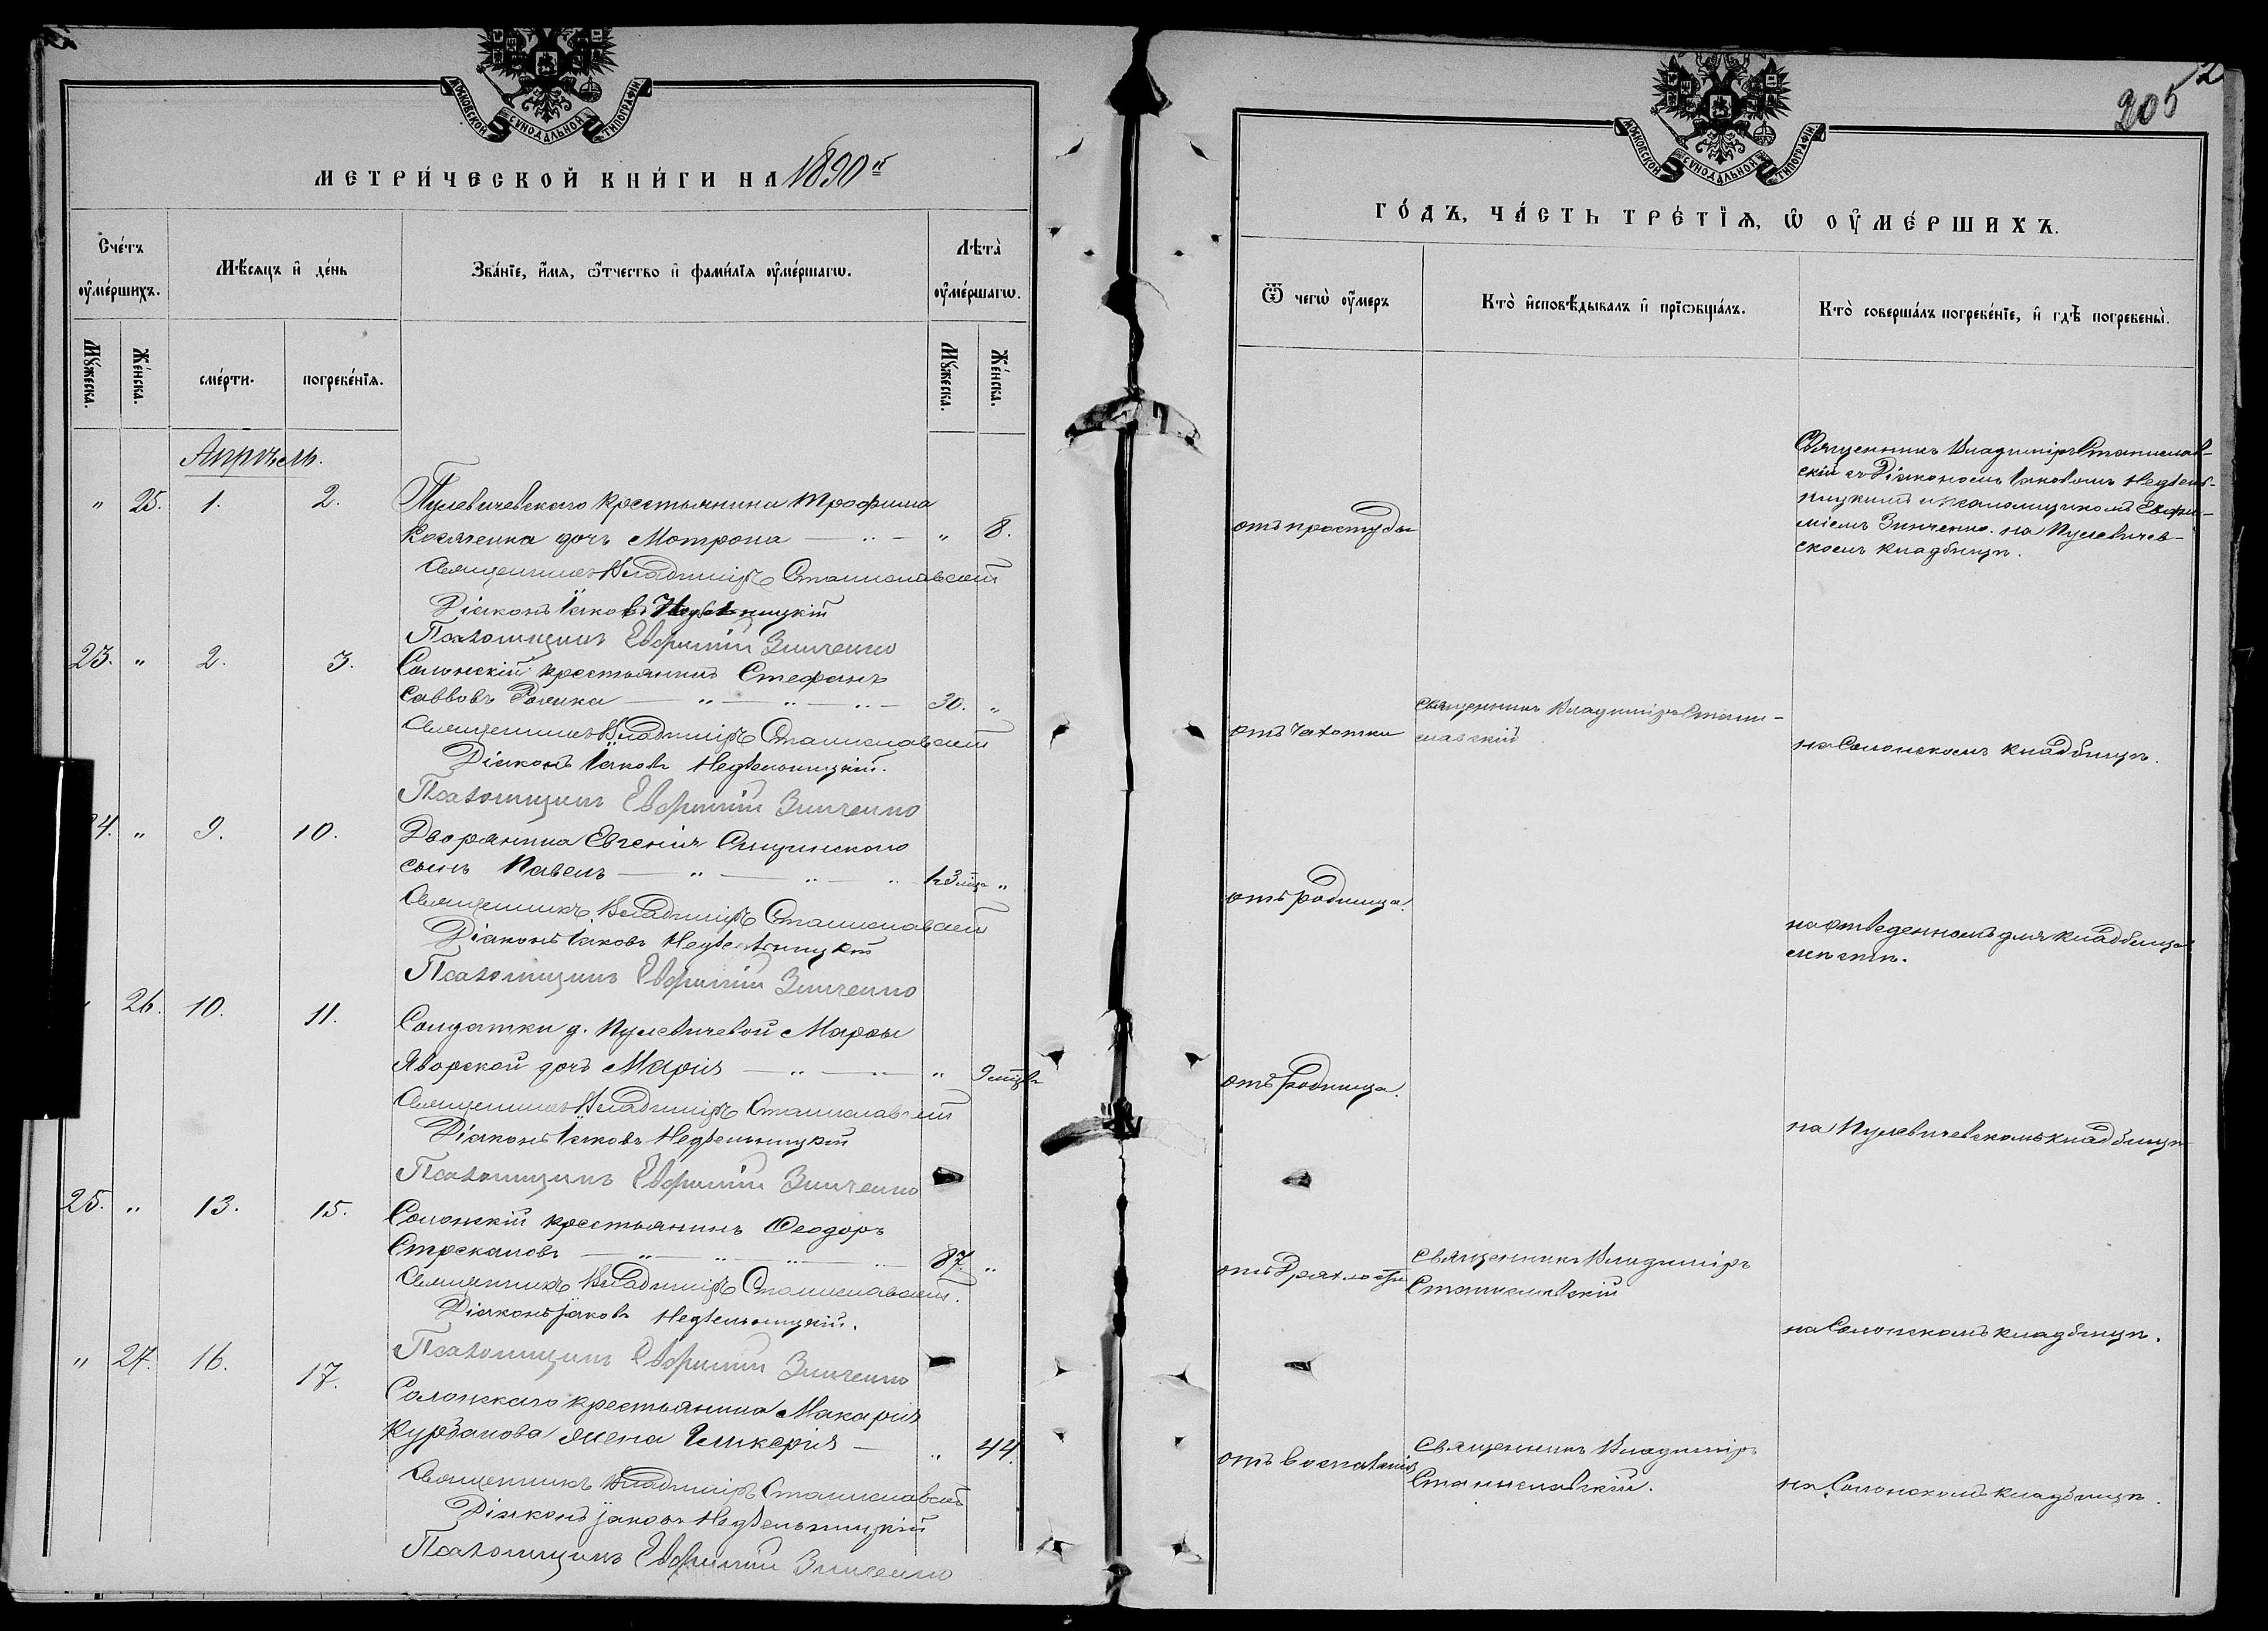 МОСКОВСКОЙ СѴНОДАЛЬНОЙ ТИПОГРАФІИ
МЕТРИ́ЧЕСКОЙ КНИ́ГИ НА 1890й
Сче́тъ оу҆ме́ршихъ.
Мѣ́сяцъ и҆ де́нь
Зва́нїе, и҆́мя, ѻ҆́тчество и҆ фами́лїя оу҆ме́ршагѡ.
Лѣта̀ оу҆ме́ршагѡ.
Мꙋ́жеска.
Же́нска.
сме́рти.
погребе́нїя.
Мꙋ́жеска.
Же́нска.
Апрѣль.
" 25. 1. 2. Пулевичевскаго крестьянина Трофима
дочь Мотрона — " — " 8.
Священникъ Владиміръ Станиславскій
Діаконъ Іаковъ Недѣльницкій
Псаломщикъ Евфимій Зинченко
23. " 2. 3. Солонскій крестьянинъ Стефанъ
Саввовъ — " — " — " — 30. "
Священникъ Владиміръ Станиславскій
Діаконъ Іаковъ Недѣльницкій.
Псаломщикъ Евфимій Зинченко
4. " 9. 10. Дворянина Евгенія
сынъ Павелъ — " — " "
Священникъ Владиміръ Станиславскій
Діаконъ Іаковъ Недѣльницкій
Псаломщикъ Евфимій Зинченко
26. 10. 11. Солдатки д. Пулевичевой Марѳы
Яворской дочь Марія — " — " — " 9 мѣц.
Священникъ Владиміръ Станиславскій
Діаконъ Іаковъ Недѣльницкій
Псаломщикъ Евфимій Зинченко
25. " 13. 15. Солонскій крестьянинъ Ѳеодоръ
Стрекаловъ — " — " — " — " 87. "
Священникъ Владиміръ Станиславскій.
Діаконъ Іаковъ Недѣльницкій.
Псаломщикъ Евфимій Зинченко
" 27. 16. 17. Солонскаго крестьянина Макарія
Курбанова жена Гликерія — " 44.
Священникъ Владиміръ Станиславскій
Діаконъ Іаковъ Недѣльницкій
Псаломщикъ Евфимій Зинченко
205
МОСКОВСКОЙ СѴНОДАЛЬНОЙ ТИПОГРАФІИ
ГО́ДЪ, ЧА́СТЬ ТРЕ́ТЇѦ, Ѡ҆ ОУ҆МЕ́РШИХЪ.
Ѿ чегѡ̀ оу҆́меръ
Кто̀ и҆сповѣ́дывалъ и҆ прїѡбща́лъ.
Кто̀ соверша́лъ погребе́нїе, и҆ гдѣ̀ погребены̀.
отъ простуды
Священникъ Владиміръ Станислав-
скій съ Діакономъ Іаковомъ Недѣль-
ницкимъ и псаломщикомъ Евфи-
міемъ Зинченко. на Пулевичев-
скомъ кладбищѣ.
отъ чахотки
священникъ Владиміръ Стани-
славскій
на Солонскомъ кладбищѣ.
отъ родимца.
на отведенномъ для кладбища
мѣстѣ.
отъ родимца.
на Пулевичевскомъ кладбищѣ
отъ дряхлости
священникъ Владиміръ
Станиславскій
на Солонскомъ кладбищѣ.
отъ воспаленія
священникъ Владиміръ
Станиславскій.
на Солонскомъ кладбищѣ.